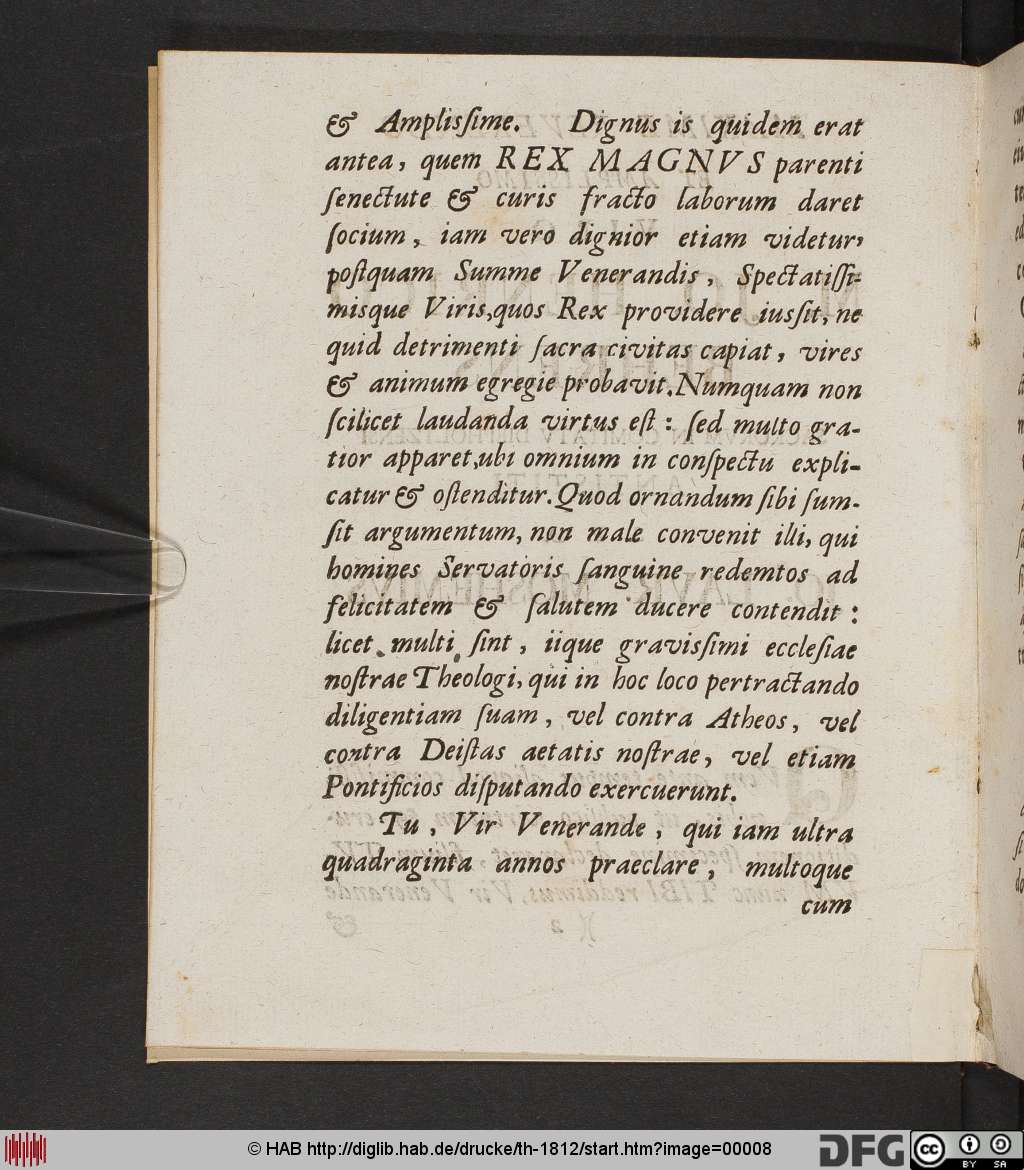 & Amplisſime. Dignus is quidem erat
antea, quem REX MAGNVS parenti
ſenectute & curis fracto laborum daret
ſocium, iam vero dignior etiam videtur,
poſtquam Summe Venerandis, Spectatiſſi-
misque Viris, quos Rex providere iusſit, ne
quid detrimenti ſacra civitas capiat, vires
& animum egregie probavit. Numquam non
ſcilicet laudanda virtus eſt: ſed multo gra-
tior apparet, ubi omnium in conſpectu expli-
catur & oſtenditur. Quod ornandum ſibi ſum-
ſit argumentum, non male convenit illi, qui
homines Servatoris ſanguine redemtos ad
felicitatem & ſalutem ducere contendit:
licet multi ſint, iique gravisſimi eccleſiae
noſtrae Theologi, qui in hoc loco pertractando
diligentiam ſuam, vel contra Atheos, vel
contra Deiſtas aetatis noſtrae, vel etiam
Pontificios diſputando exercuerunt.
Tu, Vir Venerande, qui iam ultra
quadraginta annos praeclare, multoque
cum
© HAB http://diglib.hab.de/drucke/th-1812/start.htm?image=00008
DFG
cc
BY SA